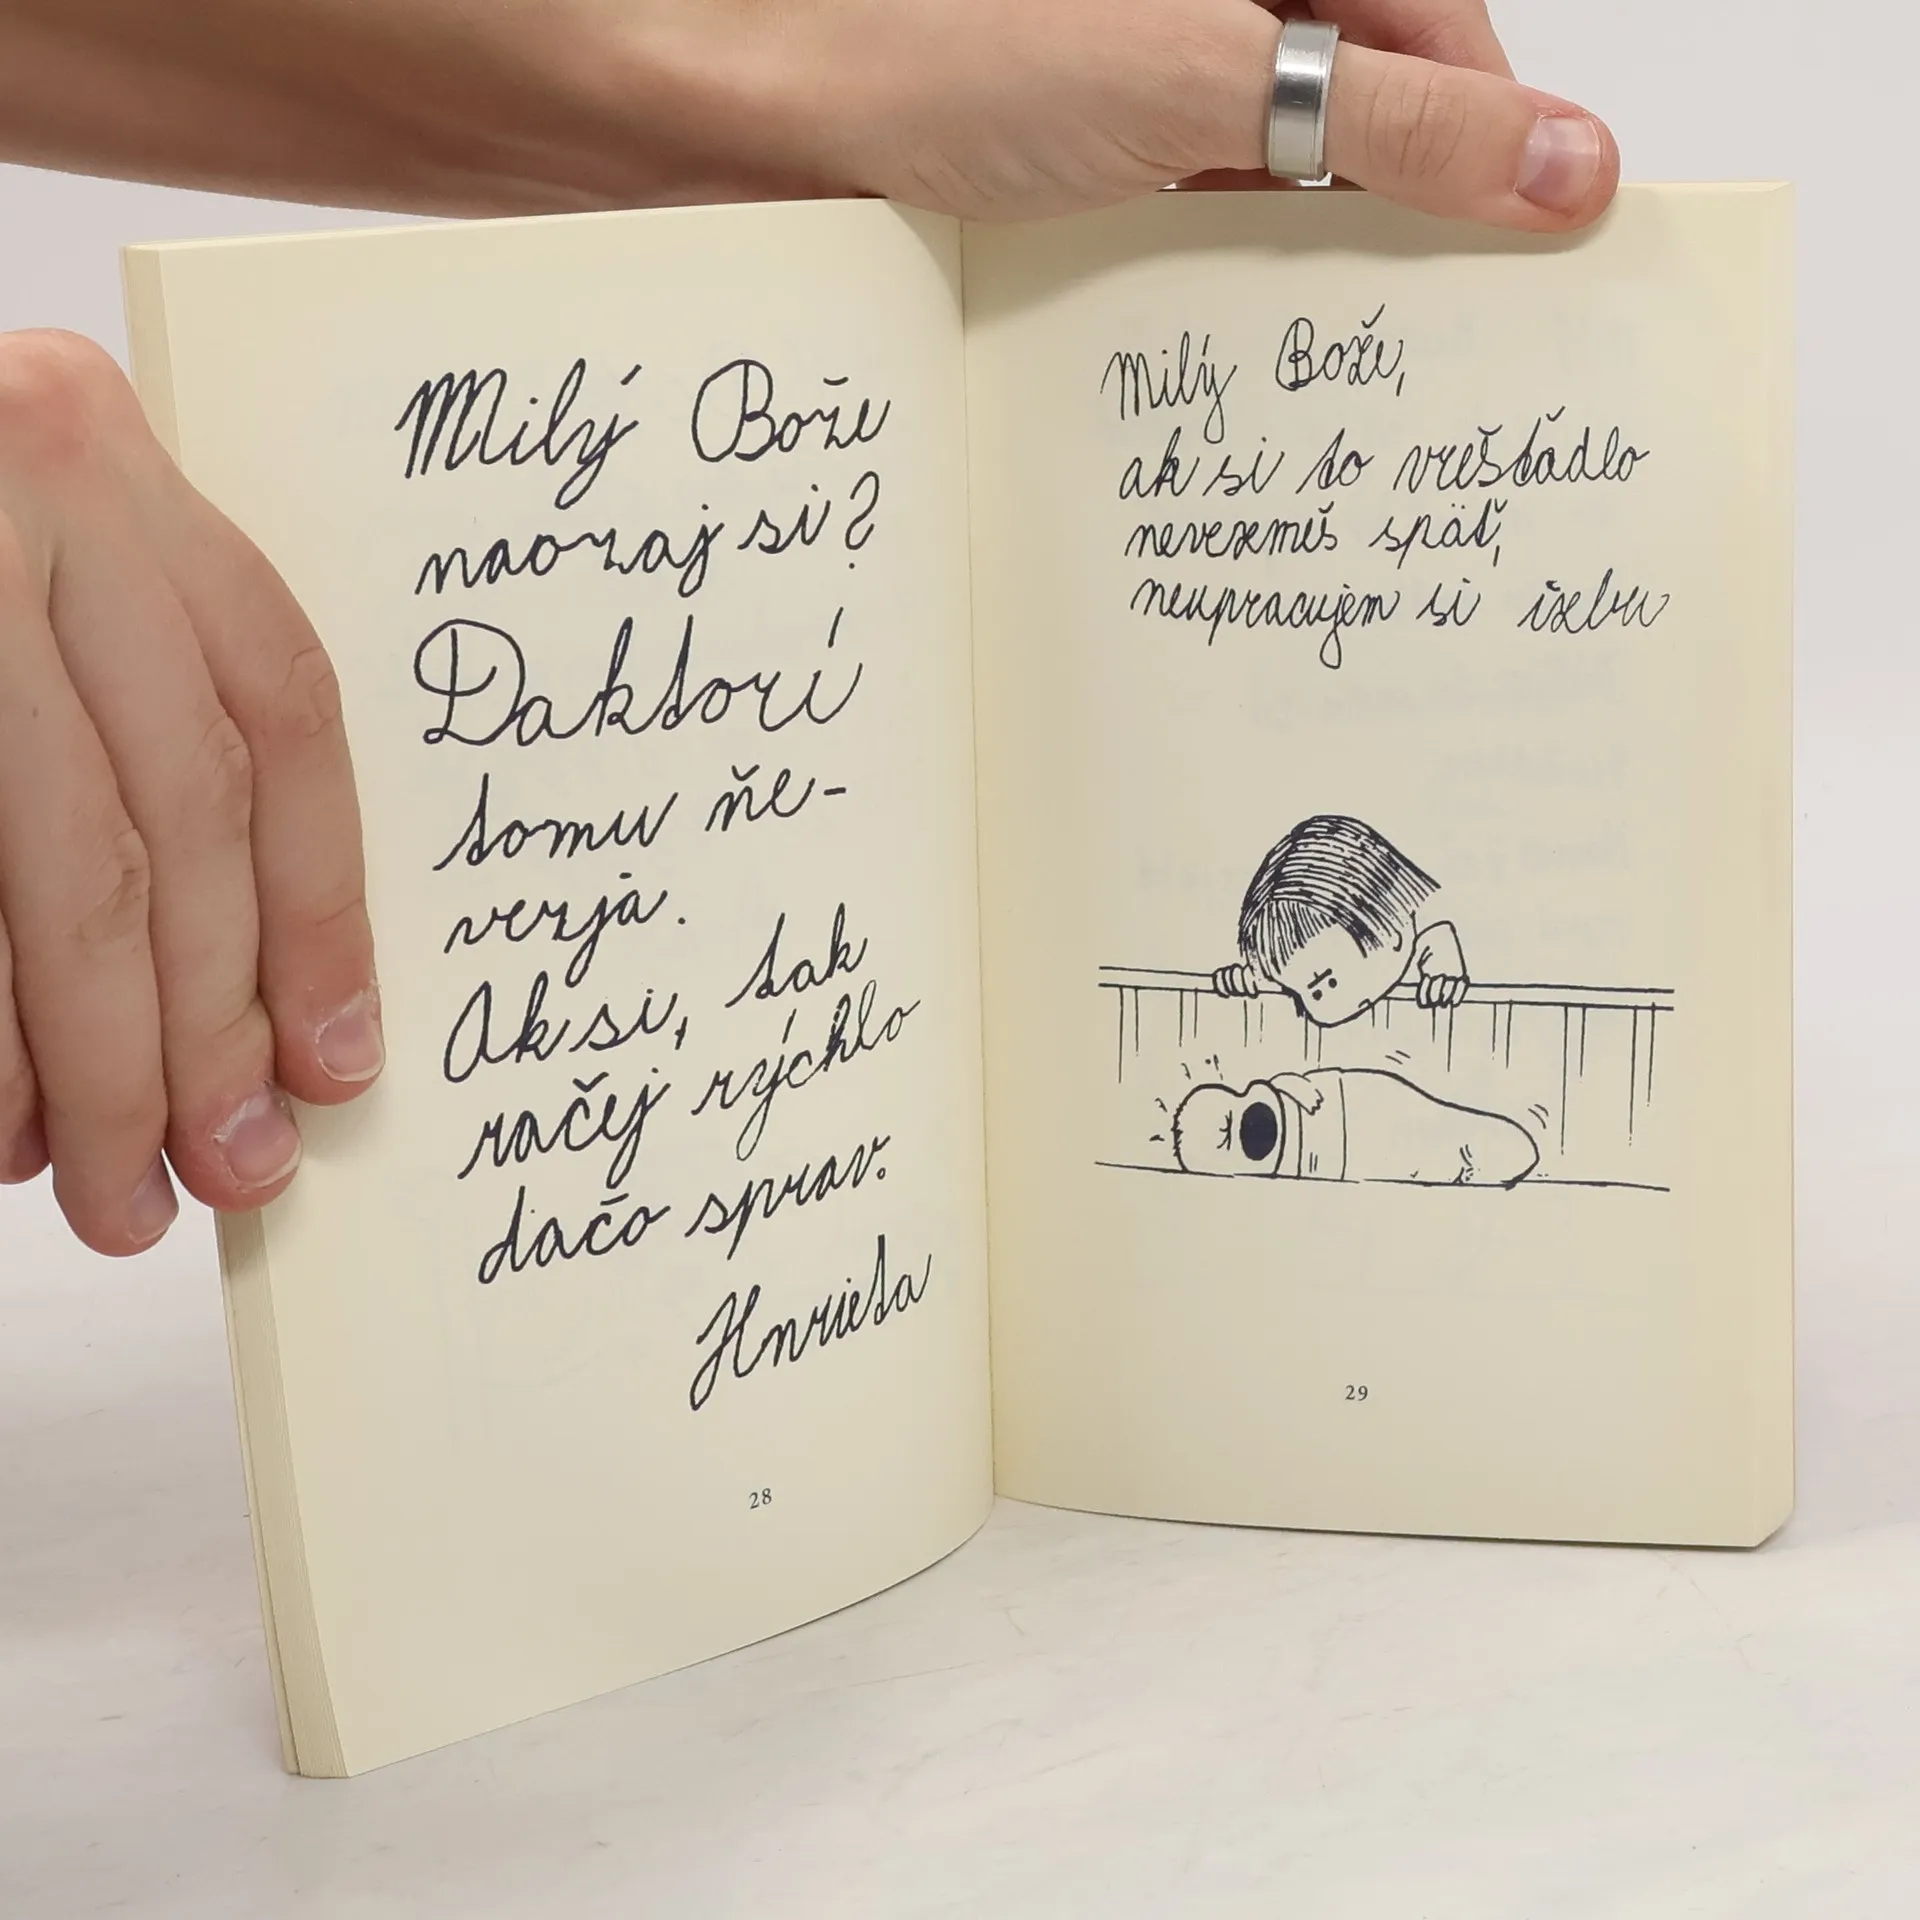 Milý Bože
naozaj si?
Daktorí
tomu ňe-
verja.
Ak si, tak
račej rýchlo
dačo sprav.
Hnrieta
28
Milý Bože,
ak si to vrešťadlo
nevezmeš späť,
neupracujem si izbu
29